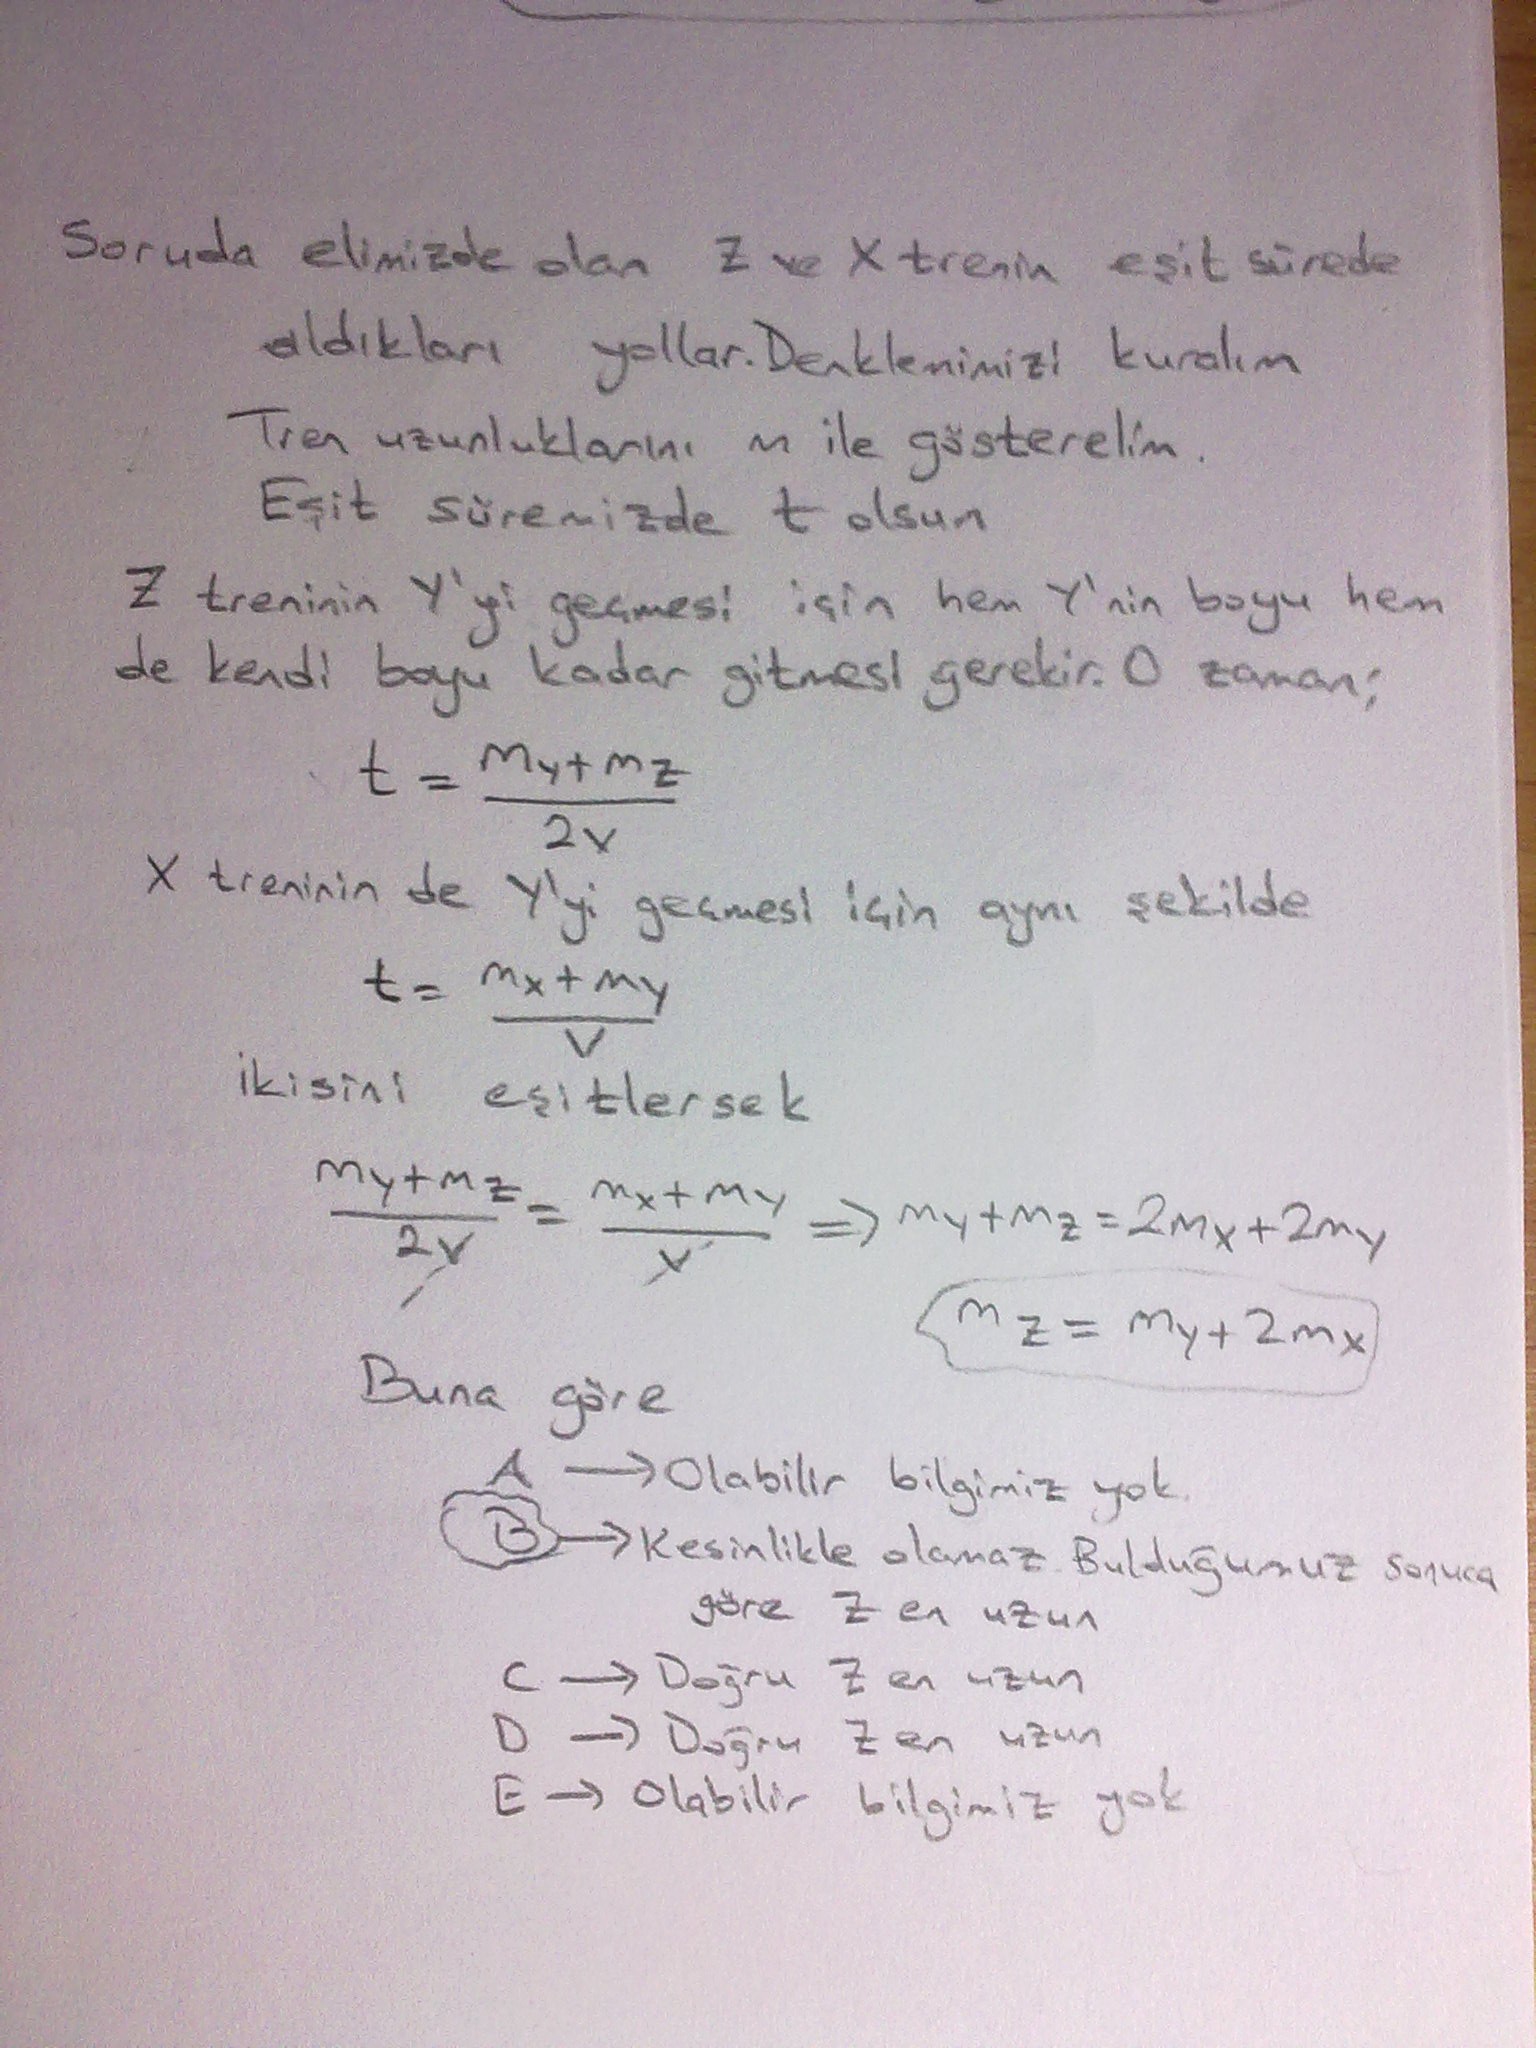 Soruda elimizde olan Z ve X trenin eşit sürede
aldıkları yollar. Denklemimizi kuralım
Tren uzunluklarını m ile gösterelim.
Eşit süremizde t olsun
Z treninin Y'yi geçmesi için hem Y'nin boyu hem
de kendi boyu kadar gitmesi gerekir. O zaman;
t = (my+mz)/2v
X treninin de Y'yi geçmesi için aynı şekilde
t = (mx+my)/v
ikisini eşitlersek
(my+mz)/2v = (mx+my)/v => my+mz=2mx+2my
mz = my+2mx
Buna göre
A → Olabilir bilgimiz yok.
B → Kesinlikle olamaz. Bulduğumuz sonuca
göre Z en uzun
C → Doğru Z en uzun
D → Doğru Z en uzun
E → Olabilir bilgimiz yok